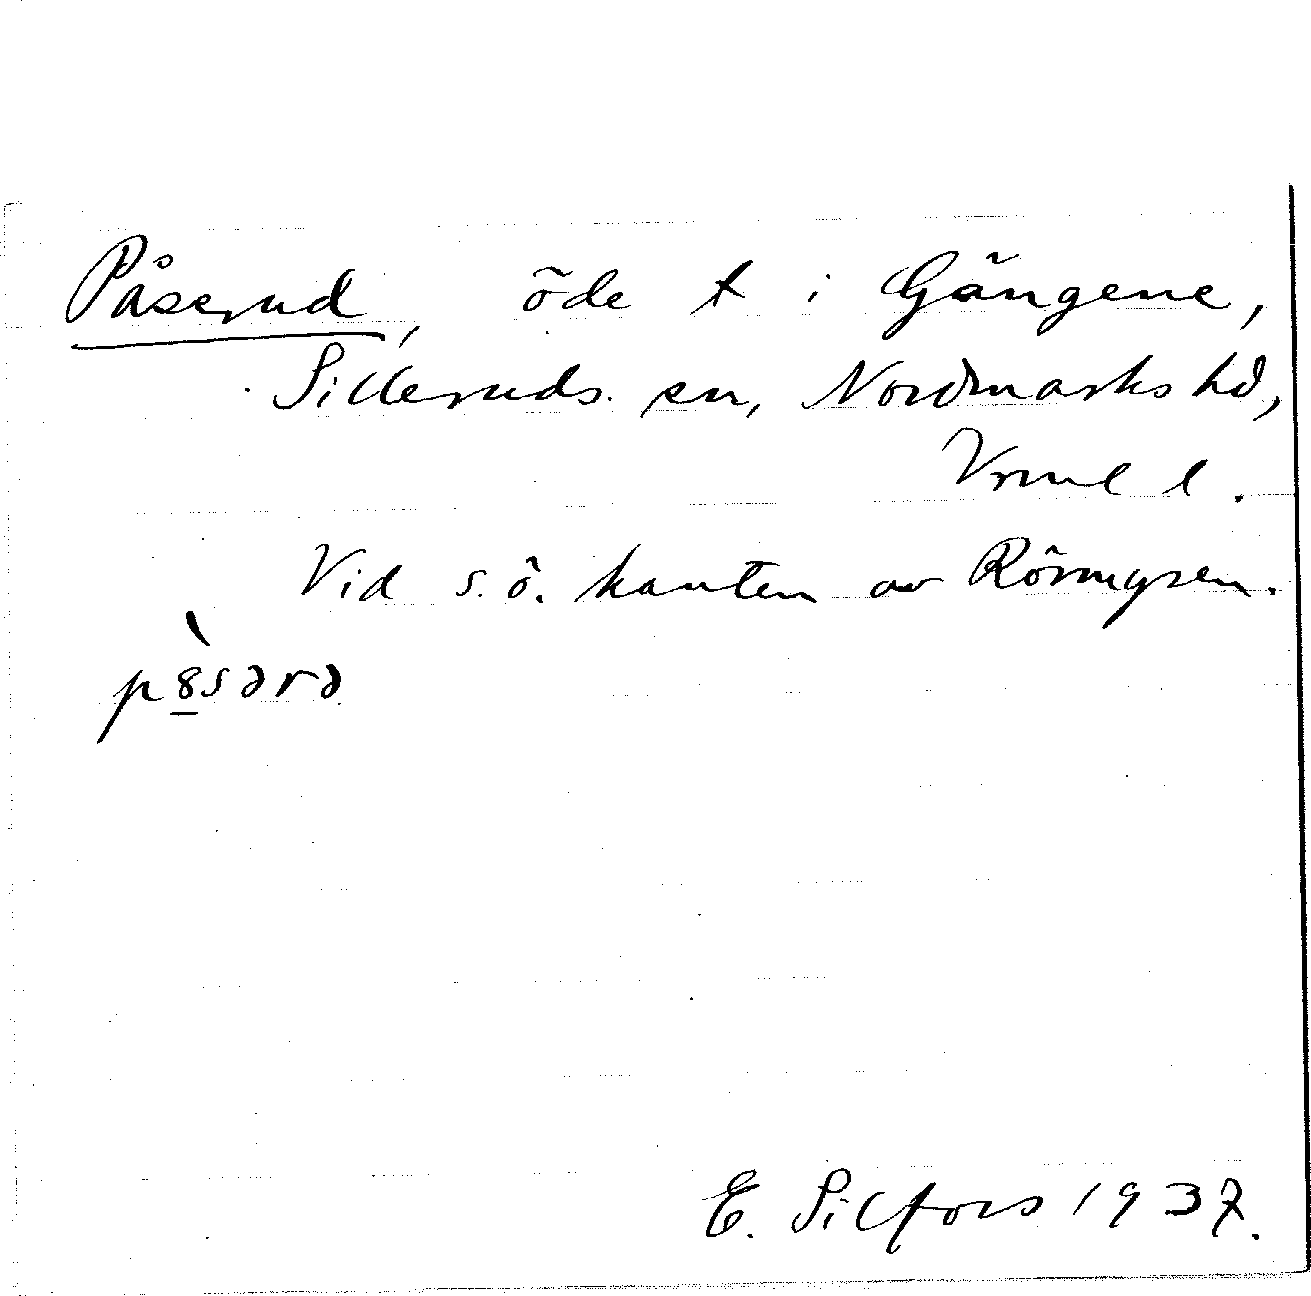 Påserud, öde t i Gängene,
Silleruds sn, Nordmarks hd,
Vrml l.
Vid s.ö. kanten av Rörmyren.
p8̲̀sərə
E. Silfors 1937.